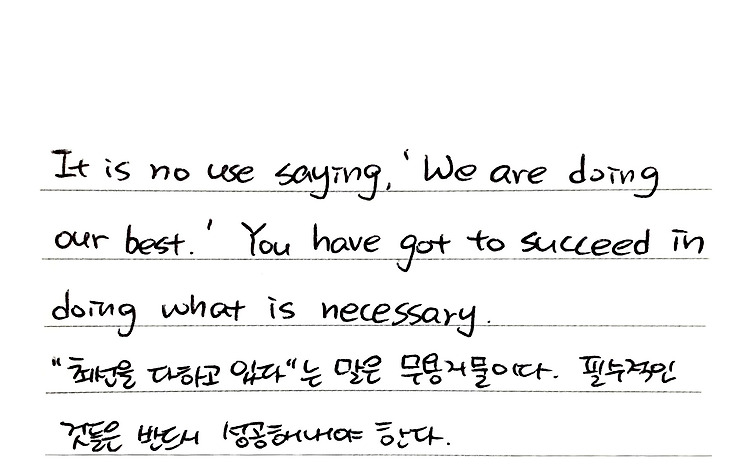 It is no use saying, 'We are doing
our best.' You have got to succeed in
doing what is necessary.
"최선을 다하고 있다"는 말은 무용지물이다. 필수적인
것들은 반드시 성공해내야 한다.